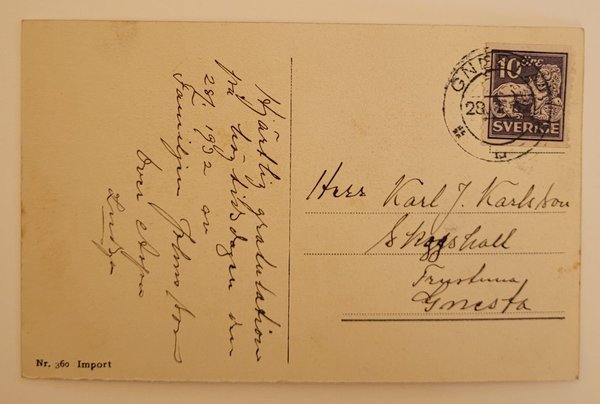 Hjärtlig gratulation
på högtidsdagen den
28/1 1932 av
Familjen Johansson
Över
GNESTA
28.1
10 ÖRE
SVERIGE
Herr Karl J. Karlsson
Skogshall
Frustuna
Gnesta
Nr. 360 Import